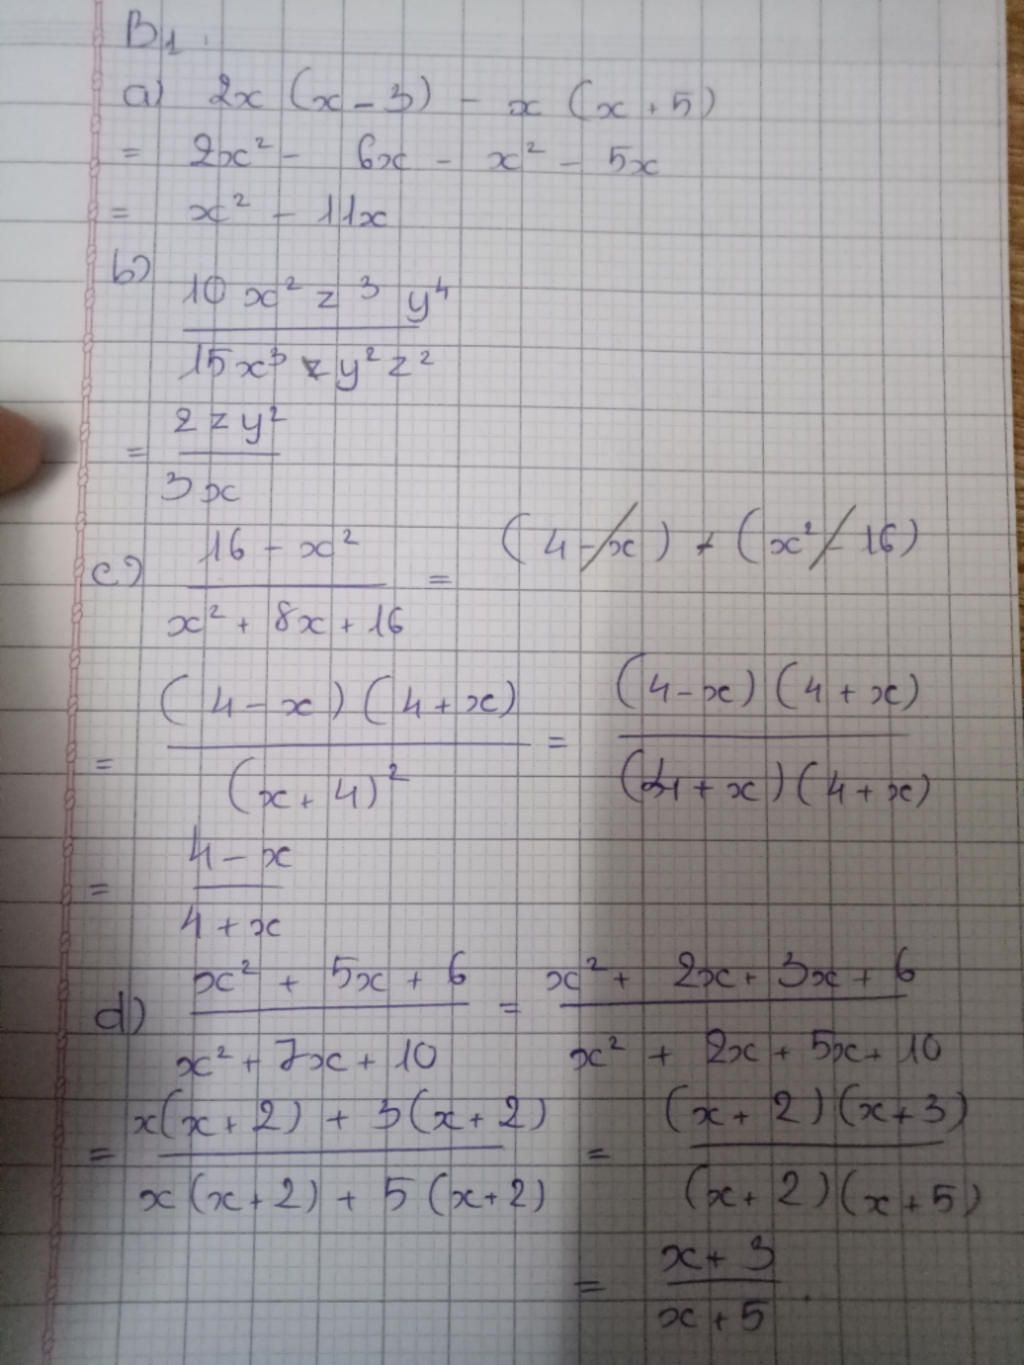 B1.
a) 2x (x - 3) - x (x + 5)
= 2x² - 6x - x² - 5x
= x² - 11x
b) 10 x² z³ y⁴
15x³ y² z²
= 2 z y²
3x
c) 16 - x² = (4 - x) + (x² - 16)
x² + 8x + 16
= (4 - x) (4 + x) = (4 - x) (4 + x)
(x + 4)² (4 + x) (4 + x)
= 4 - x
4 + x
d) x² + 5x + 6 = x² + 2x + 3x + 6
x² + 7x + 10 x² + 2x + 5x + 10
= x(x + 2) + 3(x + 2) = (x + 2)(x + 3)
x(x + 2) + 5(x + 2) (x + 2)(x + 5)
= x + 3
x + 5